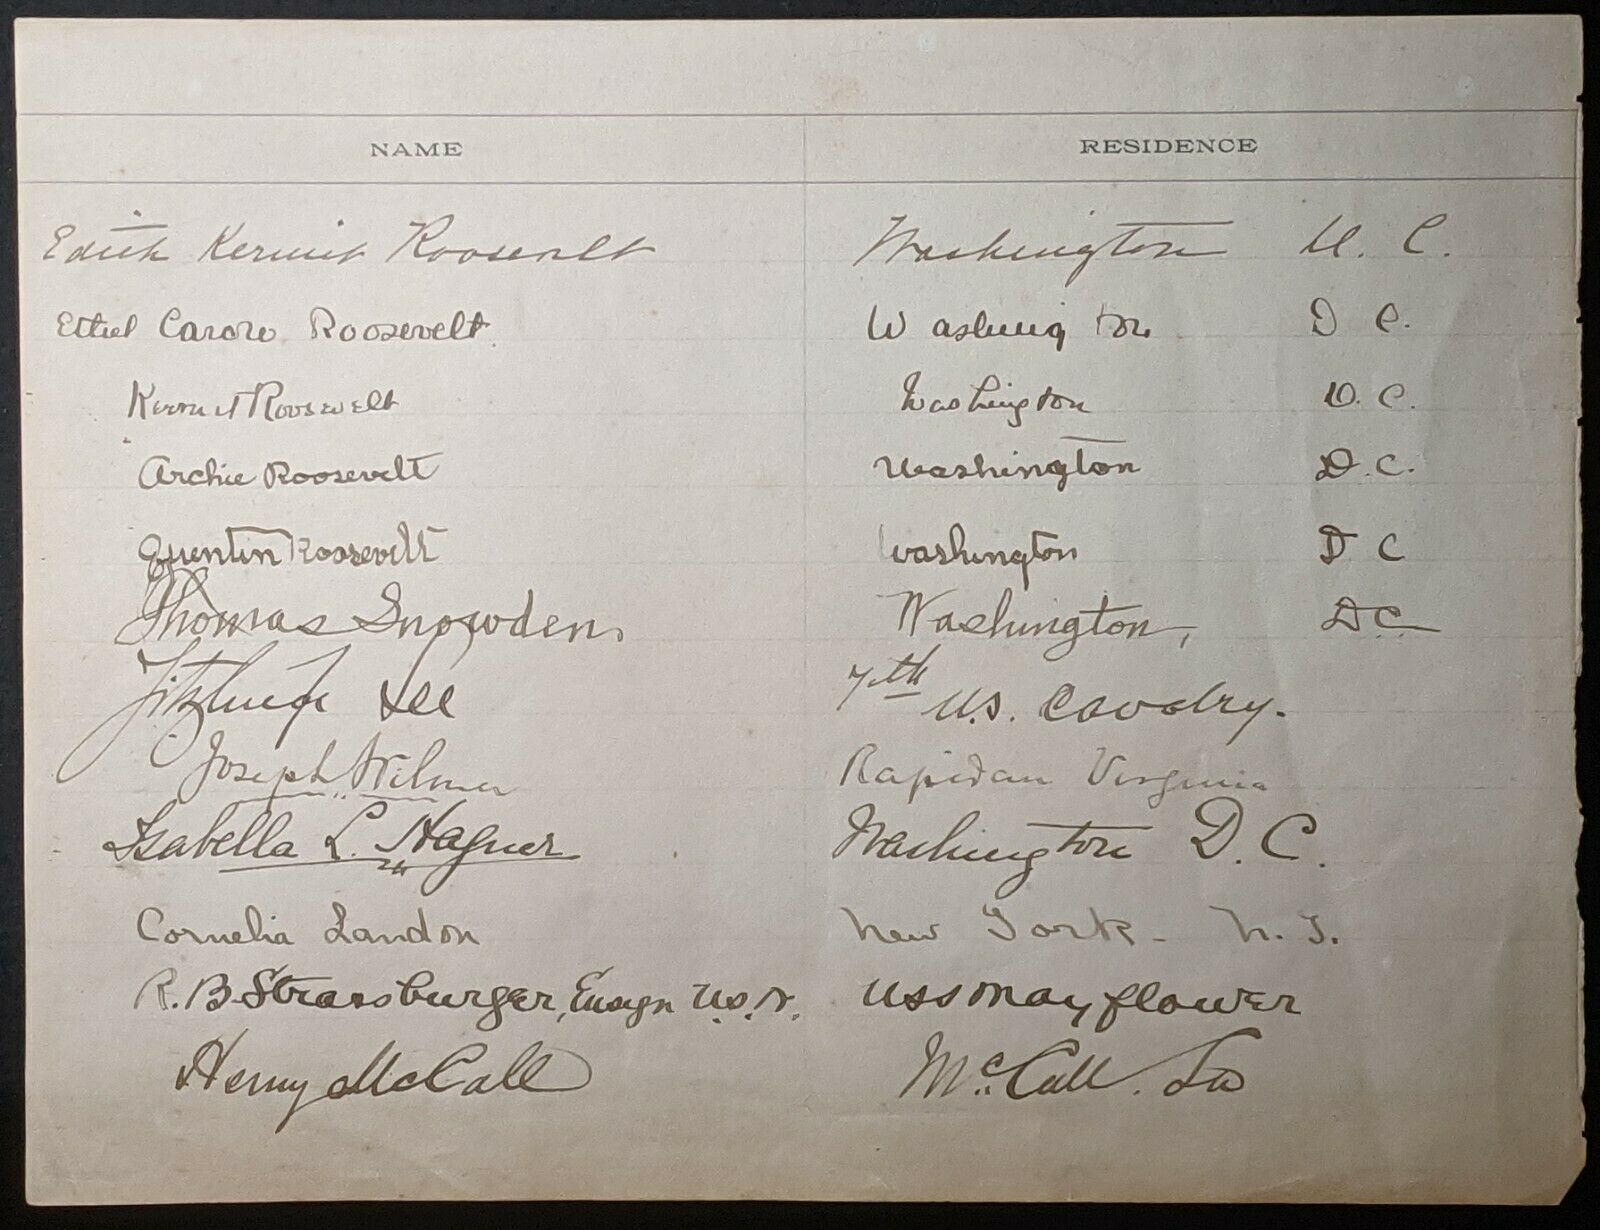 NAME RESIDENCE
Edith Kermit Roosevelt Washington D. C.
Ethel Carow Roosevelt Washington D C.
Kermit Roosevelt Washington D. C.
Archie Roosevelt Washington D. C.
Quentin Roosevelt Washington D C
Thomas Snowden, Washington, D.C.
Fitzhugh Lee 7th U.S. Cavalry.
Joseph Wilmer Rapidan Virginia
Isabella L. Hagner Washington D. C.
Cornelia Landon New York - N. Y.
R. B. Strassburger, Ensign U.S.N. USS Mayflower
Henry McCall McCall. La